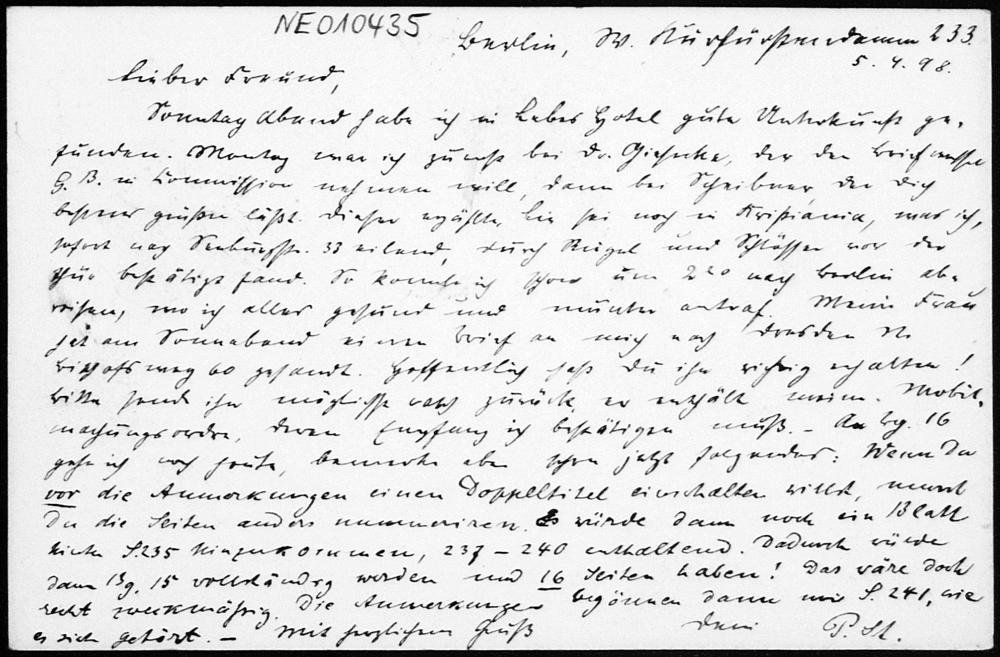 NE010435
Berlin, W. Kurfürstendamm 233.
5. 4. 98.
Lieber Freund,
Sonntag Abend habe ich in Hotel gute Unterkunft ge-
funden. Montag war ich zunächst bei Dr. der den Briefwechsel
G. B. in Commission nehmen will, dann bei Scheibner, der Dich
bestens grüßen läßt. Dieser erzählte, Lie sei noch in Kristiania, was ich,
sofort nach Seeburgstr. 33 eilend, durch Riegel und Schlösser vor der
Thür bestätigt fand. So konnte ich schon um 2 20 nach Berlin ab-
reisen, wo ich alles gesund und munter antraf. Meine Frau
hat am Sonnabend einen Brief an mich nach Dresden N
Bischofsweg 60 gesandt. Hoffentlich hast Du ihn richtig erhalten!
Bitte sende ihn möglichst rasch zurück, er enthält meine Mobil-
machungsordre, deren Empfang ich bestätigen muß. – An Bg. 16
gehe ich noch heute, bemerke aber schon jetzt folgendes: Wenn Du
vor die Anmerkungen einen Doppeltitel einschalten willst, mußt
Du die Seiten anders nummeriren. Es würde dann noch ein Blatt
hinter S. 235 hinzukommen, 237 – 240 enthaltend. Dadurch würde
dann Bg. 15 vollständig werden und 16 Seiten haben! Das wäre doch
recht zweckmäßig. Die Anmerkungen begönnen dann mit S. 241, wie
es sich gehört. – Mit herzlichem Gruß Dein P. St.